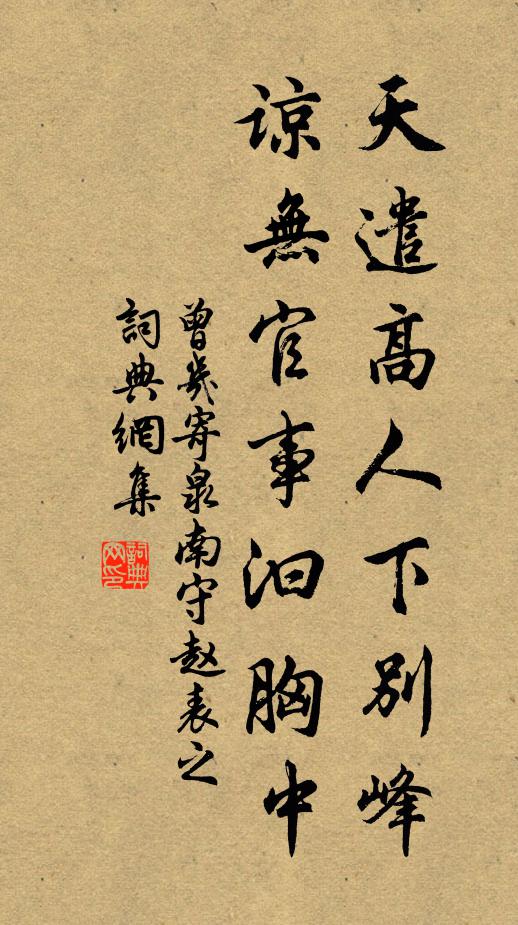 天遣高人下別峰
諒無官事汩胸中
曾幾寄泉南守赵表之
詞典網集
詞典網印